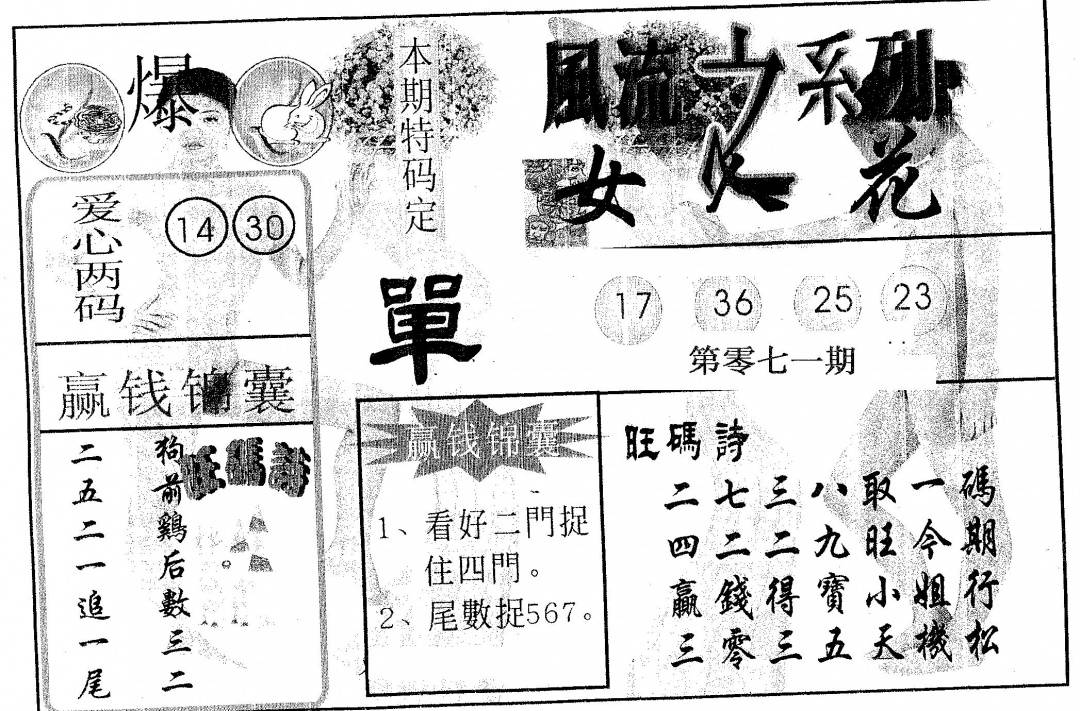 爆
爱心两码
14 30
赢钱锦囊
旺碼詩
狗前鷄后數三二
二五二一追一尾
本期特码定
單
風流之系列
女 花
17 36 25 23
第零七一期
赢钱锦囊
1、看好二門捉
住四門。
2、尾數捉567。
旺碼詩
二七三八取一碼
四二二九旺今期
贏錢得寶小姐行
三零三五天機松